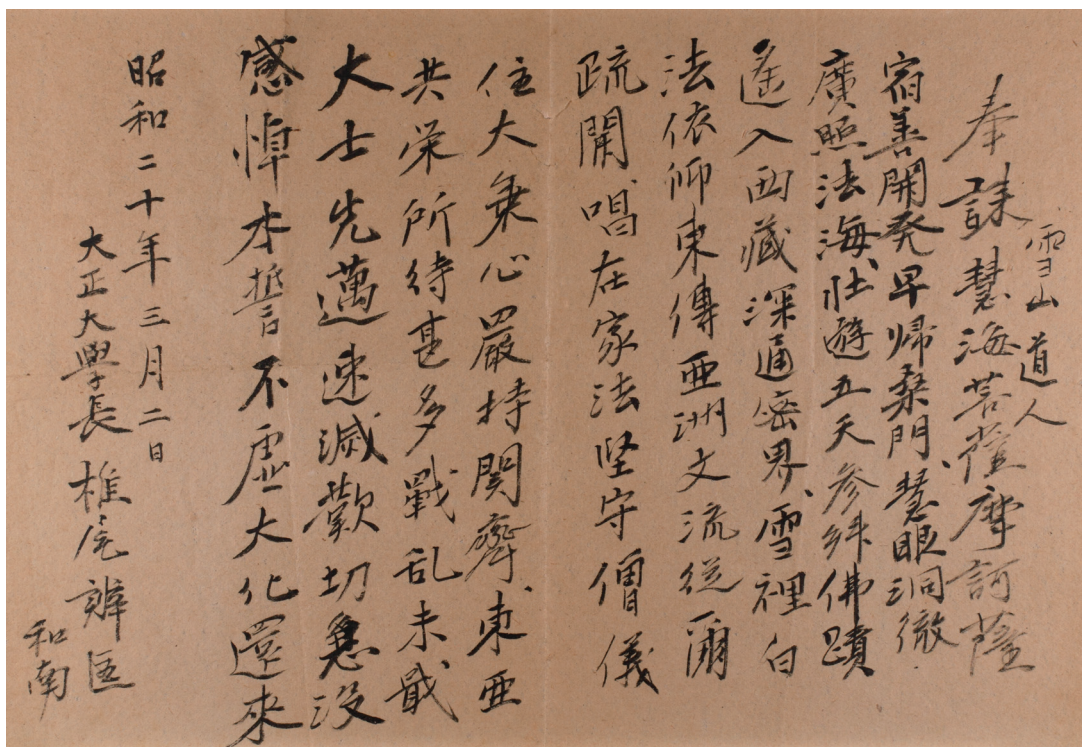 雪山道人
奉誄慧海菩薩摩訶薩
宿善開発早帰桑門、慧眼洞徹
廣照法海、壮遊五天参拝佛蹟
遙入西蔵深通密界、雪裡白
法依仰東傳亜洲文流従爾
疏開唱在家法堅守僧儀
住大乗心嚴持関齋、東亜
共栄所待甚多戰乱未戢
大士先邁速滅歎切急没
感悼本誓不虚大化還来
昭和二十年三月二日
大正大學長椎尾辨匡
和南